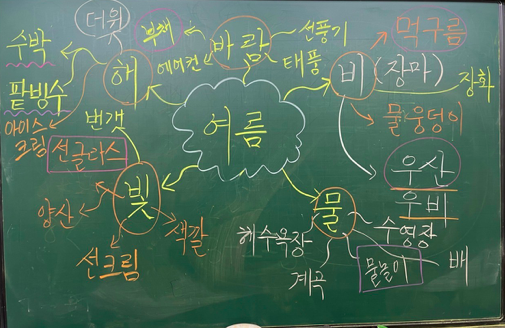 더윗
수박
팥빙수
아이스
크림
해
부채
에어컨
바람
선풍기
태풍
비 (장마)
먹구름
장화
물웅덩이
우산
우비
여름
번갯
선글라스
빛
양산
선크림
색깔
물
해수욕장
계곡
수영장
물놀이
배